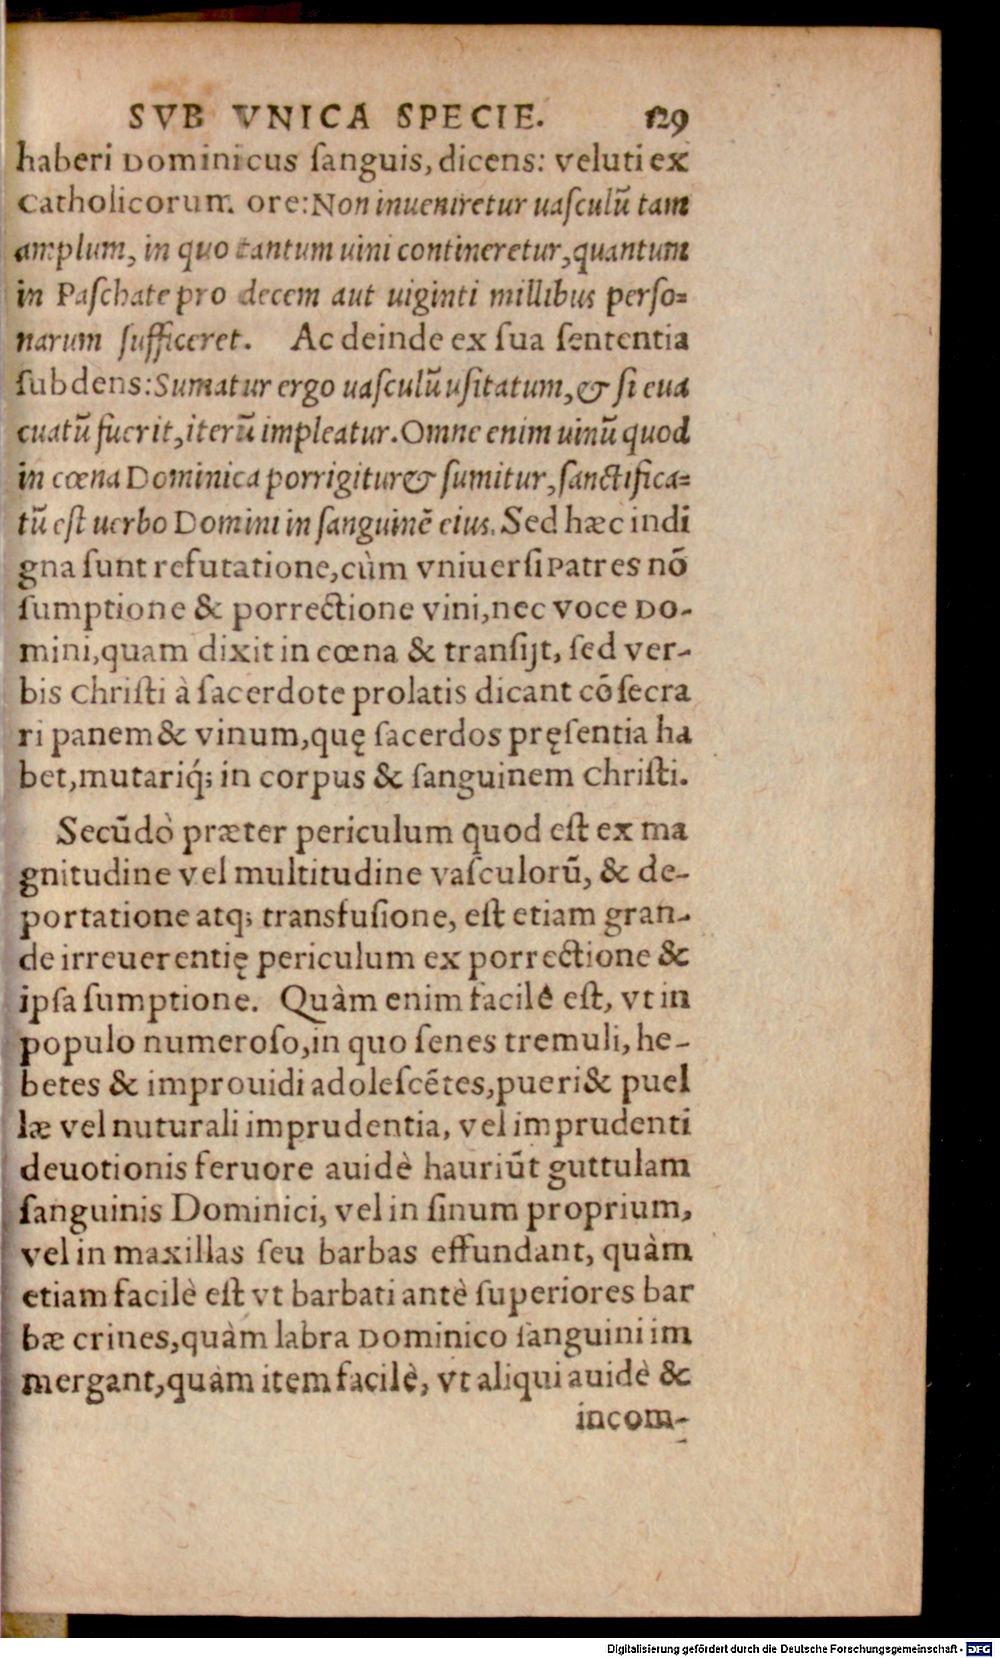 SVB VNICA SPECIE. 129
haberi Dominicus ſanguis, dicens: veluti ex
Catholicorum ore: Non inueniretur uaſculũ tam
amplum, in quo tantum uini contineretur, quantum
in Paſchate pro decem aut uiginti millibus perſo=
narum ſufficeret. Ac deinde ex ſua ſententia
ſubdens: Sumatur ergo uaſculũ uſitatum, & ſi eua
cuatũ fuerit, iterũ impleatur. Omne enim uinũ quod
in cœna Dominica porrigitur & ſumitur, ſanctifica=
tũ eſt uerbo Domini in ſanguinẽ eius. Sed hæc indi
gna ſunt refutatione, cùm vniuerſi Patres nõ
ſumptione & porrectione vini, nec voce Do-
mini, quam dixit in cœna & tranſijt, ſed ver-
bis Chriſti à ſacerdote prolatis dicant cõſecra
ri panem & vinum, quę ſacerdos pręſentia ha
bet, mutariq́; in corpus & ſanguinem Chriſti.
Secũdò præter periculum quod eſt ex ma
gnitudine vel multitudine vaſculorũ, & de-
portatione atq; transfuſione, eſt etiam gran-
de irreuerentię periculum ex porrectione &
ipſa ſumptione. Quàm enim facilè eſt, vt in
populo numeroſo, in quo ſenes tremuli, he-
betes & improuidi adoleſcẽtes, pueri & puel
læ vel nuturali imprudentia, vel imprudenti
deuotionis feruore auidè hauriũt guttulam
ſanguinis Dominici, vel in ſinum proprium,
vel in maxillas ſeu barbas effundant, quàm
etiam facilè eſt vt barbati antè ſuperiores bar
bæ crines, quàm labra Dominico ſanguini im
mergant, quàm item facilè, vt aliqui auidè &
incom-
Digitalisierung gefördert durch die Deutsche Forschungsgemeinschaft - DFG